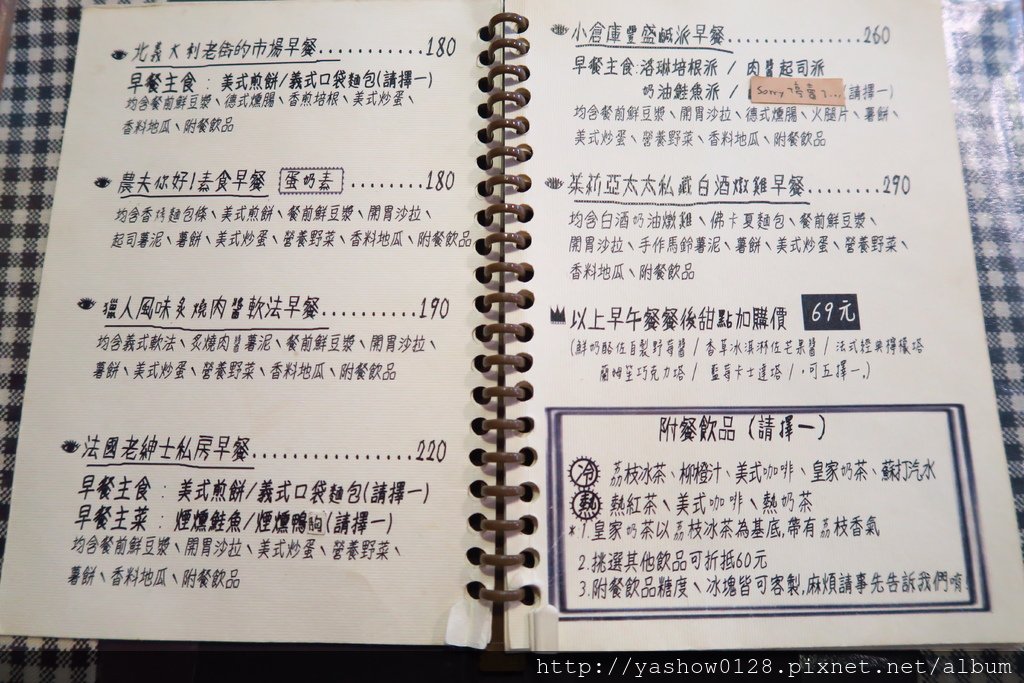 北義大利老街的市場早餐............180
早餐主食：美式煎餅/義式口袋麵包(請擇一)
均含餐前鮮豆漿、德式燻腸、香煎培根、美式炒蛋、
香料地瓜、附餐飲品
農夫你好!素食早餐 蛋奶素 .........180
均含香烤麵包條、美式煎餅、餐前鮮豆漿、開胃沙拉、
起司薯泥、薯餅、美式炒蛋、營養野菜、香料地瓜、附餐飲品
獵人風味炙燒肉醬軟法早餐...........190
均含義式軟法、炙燒肉醬薯泥、餐前鮮豆漿、開胃沙拉、
薯餅、美式炒蛋、營養野菜、香料地瓜、附餐飲品
法國老紳士私房早餐..................220
早餐主食：美式煎餅/義式口袋麵包(請擇一)
早餐主菜：煙燻鮭魚/煙燻鴨胸(請擇一)
均含餐前鮮豆漿、開胃沙拉、美式炒蛋、營養野菜、
薯餅、香料地瓜、附餐飲品
小倉庫豐盛鹹派早餐..............260
早餐主食:洛琳培根派 / 肉醬起司派
奶油鮭魚派 / Sorry 停售了... (請擇一)
均含餐前鮮豆漿、開胃沙拉、德式燻腸、火腿片、薯餅、
美式炒蛋、營養野菜、香料地瓜、附餐飲品
茱莉亞太太私藏白酒燉雞早餐........290
均含白酒奶油燉雞、佛卡夏麵包、餐前鮮豆漿、
開胃沙拉、手作馬鈴薯泥、薯餅、美式炒蛋、營養野菜、
香料地瓜、附餐飲品
以上早午餐餐後甜點加購價 69元
(鮮奶酪佐自製野莓醬 / 香草冰淇淋佐芒果醬 / 法式經典檸檬塔
蘭姆笙巧克力塔 / 藍莓卡士達塔 / ·可五擇一.)
附餐飲品 (請擇一)
冷 荔枝冰茶、柳橙汁、美式咖啡、皇家奶茶、蘇打汽水
熱 熱紅茶、美式咖啡、熱奶茶
*1.皇家奶茶以荔枝冰茶為基底,帶有荔枝香氣
2.挑選其他飲品可折抵60元
3.附餐飲品糖度、冰塊皆可客製,麻煩請事先告訴我們唷!
http://yashow0128.pixnet.net/album